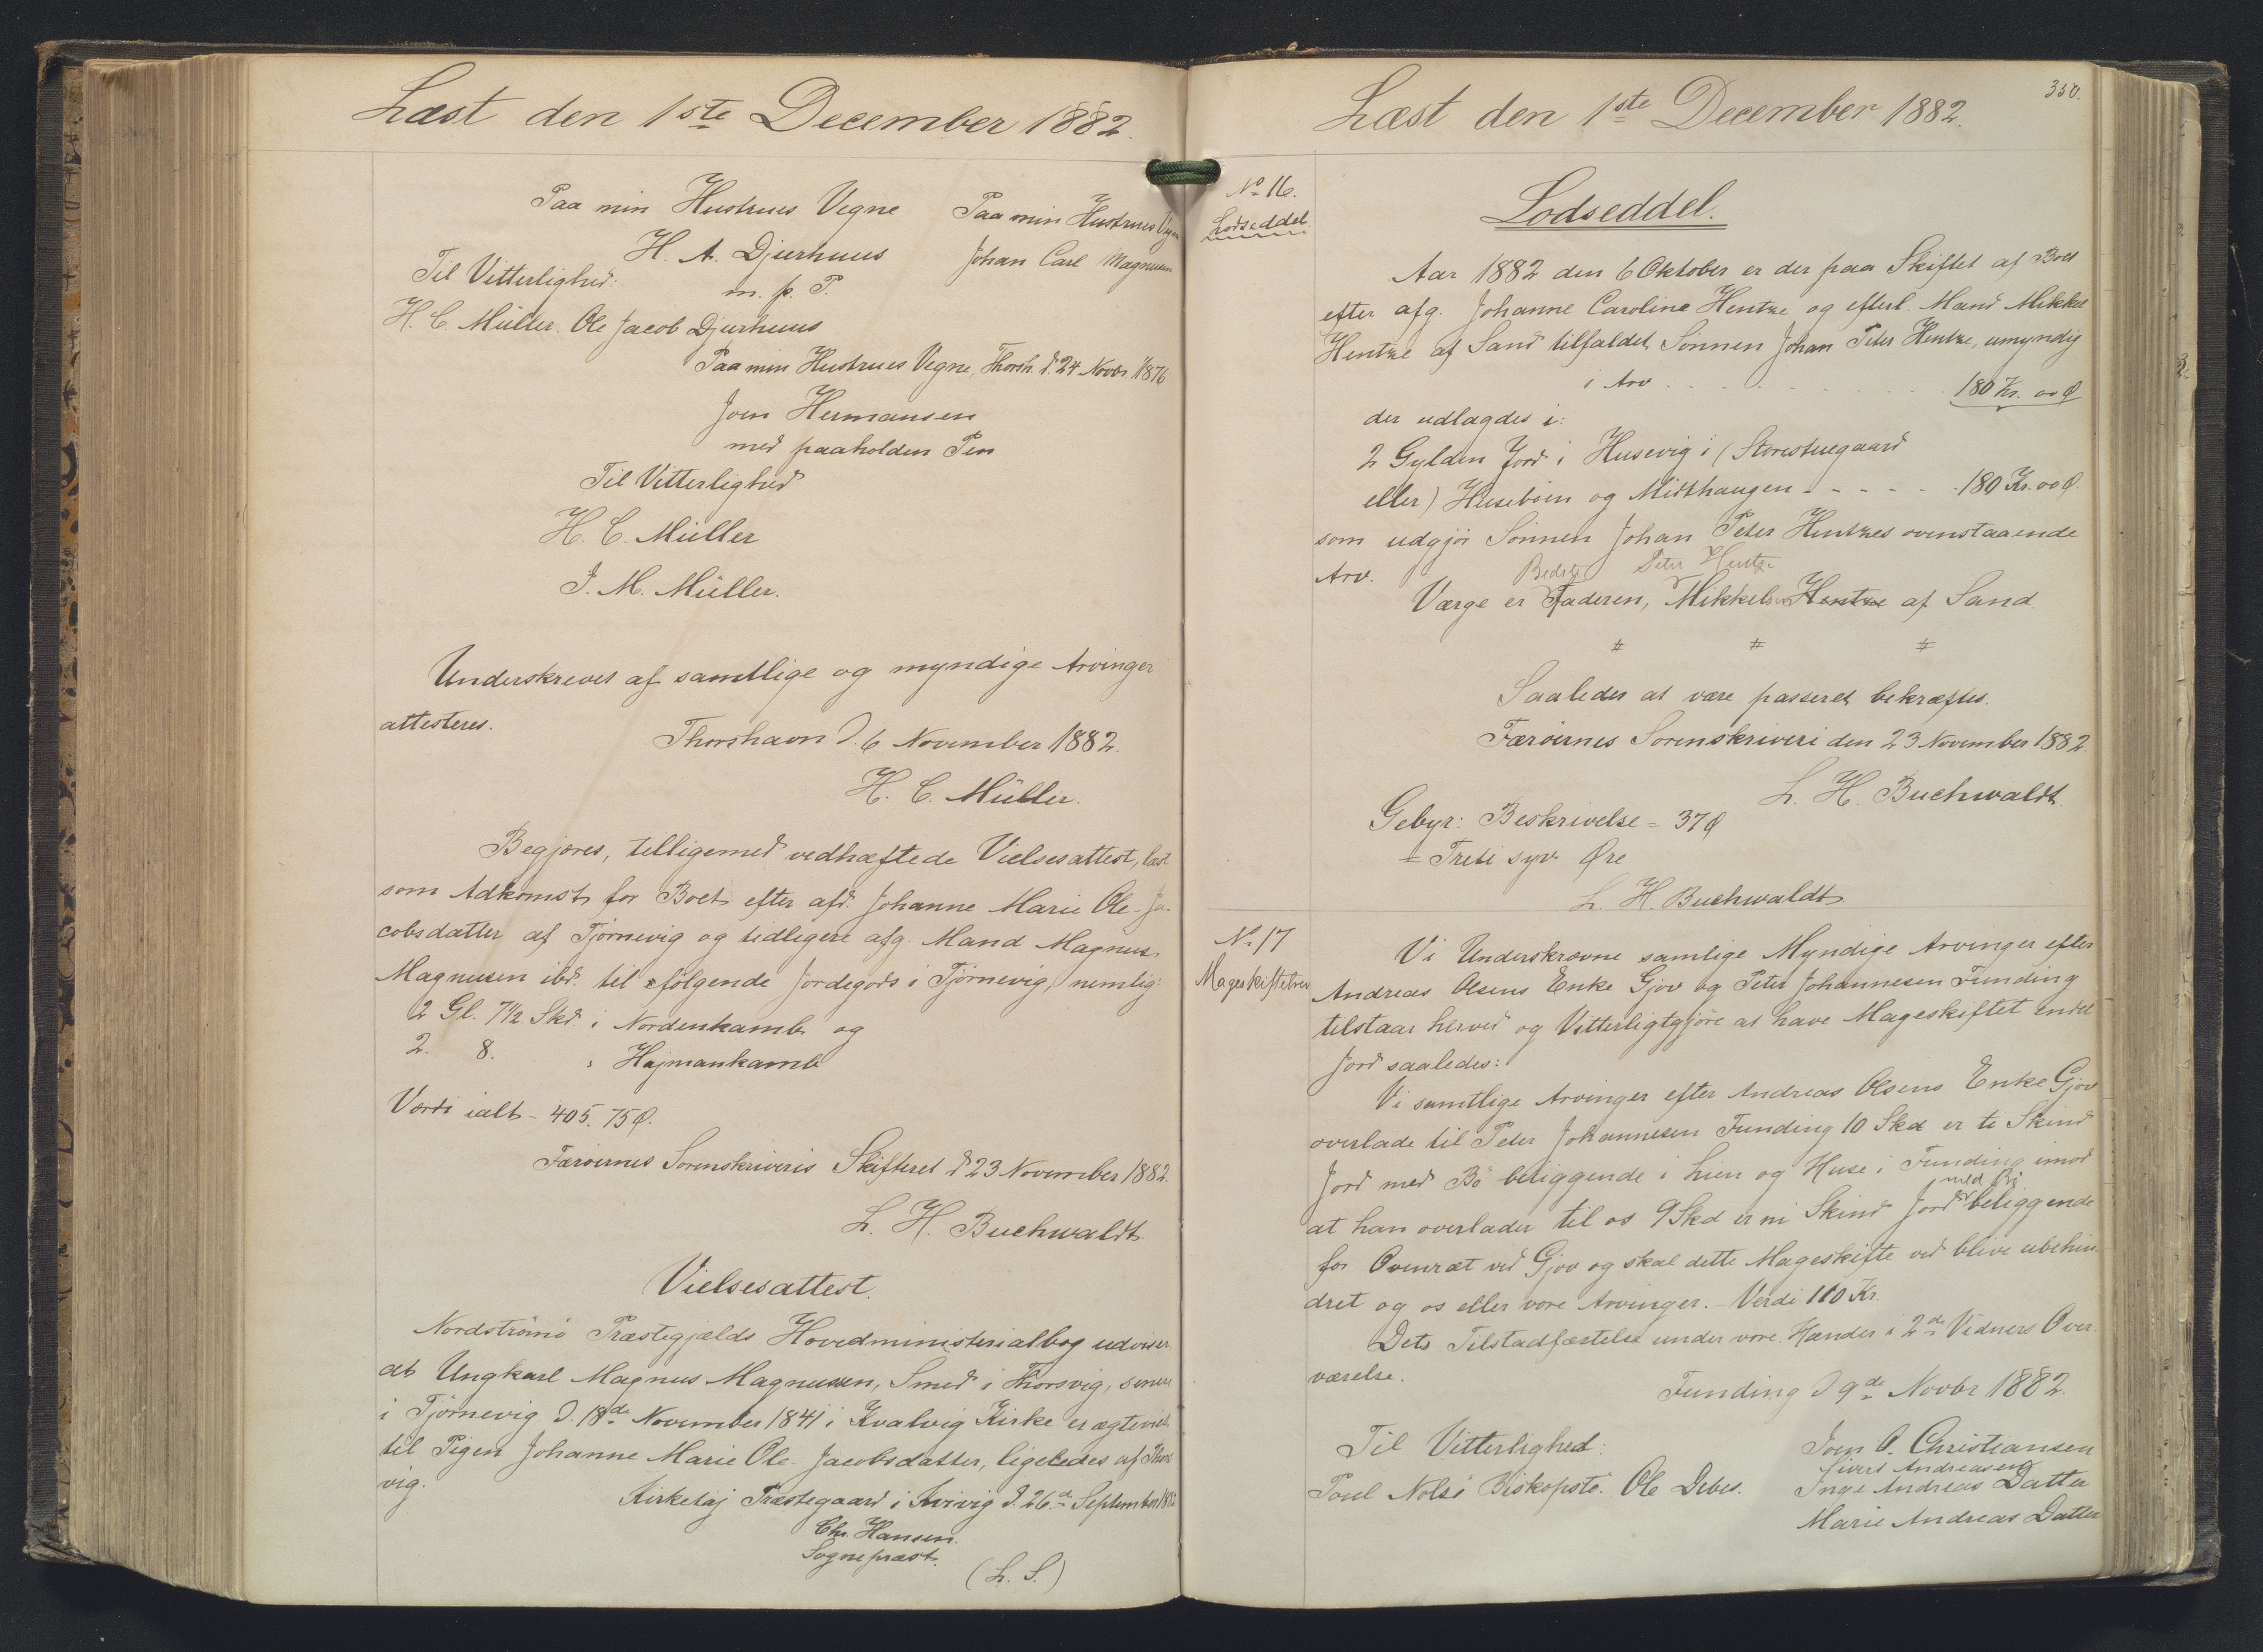 Læst den 1ste December 1882.
Paa min Hustrues Vegne
H. A. Djurhuus
m. p. P.
Paa min Hustrues Vegne
Johan Carl Magnusen
Til Vitterlighed:
H. C. Müller. Ole Jacob Djurhuus
Paa min Hustrues Vegne, Thorsh. d. 24 Novbr. 1876
Joen Hermansen
med paaholden Pen
Til Vitterlighed
H. C. Müller
J. M. Müller.
Underskrevet af samtlige og myndige Arvinger
attesteres.
Thorshavn d. 6 November 1882.
H. C. Müller.
Begjæres, tilligemed vedhæftede Vielsesattest, læst
som Adkomst for Boet efter afd. Johanne Marie Ole-Ja-
cobsdatter af Tjørnevig og tidligere afg. Mand Magnus
Magnusen ibd. til følgende Jordegods i Tjørnevig, nemlig:
2 Gl. 7 1/2 Skd. i Nordenkamb og
2. 8. " Hajmankamb
Værdi ialt - 405. 75 Ø.
Færøernes Sorenskriveris Skifteret d. 23 November 1882.
L. H. Buchwaldt.
Vielsesattest.
Nordstrømø Præstegjælds Hovedministerialbog udviser,
at Ungkarl Magnus Magnussen, Smed i Thorsvig, senere
i Tjørnevig d. 18de November 1841 i Kvalvig Kirke er ægteviet
til Pigen Johanne Marie Ole-Jacobsdatter, ligeledes af Thors
vig.
Kirketøj Præstegaard i Kvivig d. 26de September 1882
Chr. Hansen.
Sognepræst.
(L. S.)
350.
Læst den 1ste December 1882.
No 16.
Lodseddel
Lodseddel.
Aar 1882 den 6 Oktober er der paa Skiftet af Boet
efter afg. Johanne Caroline Hentze og efterl. Mand Mikkel
Hentze af Sand tilfaldet Sønnen Johan Peter Hentze, umyndig
i Arv . . . . . . . . 180 Kr. 00 Ø
der udlagdes i:
2 Gylden Jord i Husevig i (Storestuegaard
eller) Husebøen og Midthaugen - - - - - 180 Kr. 00 Ø.
som udgjør Sønnen Johan Peter Hentzes ovenstaaende
Arv.
Bedste Peter Hentze
Værge er Faderen, Mikkels Hentze af Sand.
# # #
Saaledes at være passeret bekræftes.
Færøernes Sorenskriveri den 23 November 1882.
L. H. Buchwaldt.
Gebyr: Beskrivelse = 37 Ø
= Treti syv Øre
L. H. Buchwaldt
No 17
Mageskiftebrev
Vi Underskrevne samlige Myndige Arvinger efter
Andreas Olsens Enke Gjov og Peter Johannesen Funding
tilstaar herved og Vitterligtgjøre at have Mageskiftet endel
Jord saaledes:
Vi samtlige Arvinger efter Andreas Olsens Enke Gjov
overlade til Peter Johannesen Funding 10 Skd er ti Skind
Jord med Bø beliggende i Lien og Huse i Funding imod
med Bø
at han overlader til os 9 Skd er ni Skind Jord beliggende
for Ovenræt ved Gjov og skal dette Mageskifte ved blive ubehin-
dret og os eller vore Arvinger. - Verdi 110 Kr.
Dets Tilstadfæstelse under vore Hænder i 2de Vidners Over-
værelse.
Funding d 9de Novbr 1882.
Til Vitterlighed:
Poul Nolsø Biskopstø. Ole Debes.
Joen O. Christiansen
Sivert Andreasen
Inge Andreas Datter
Marie Andreas Datter